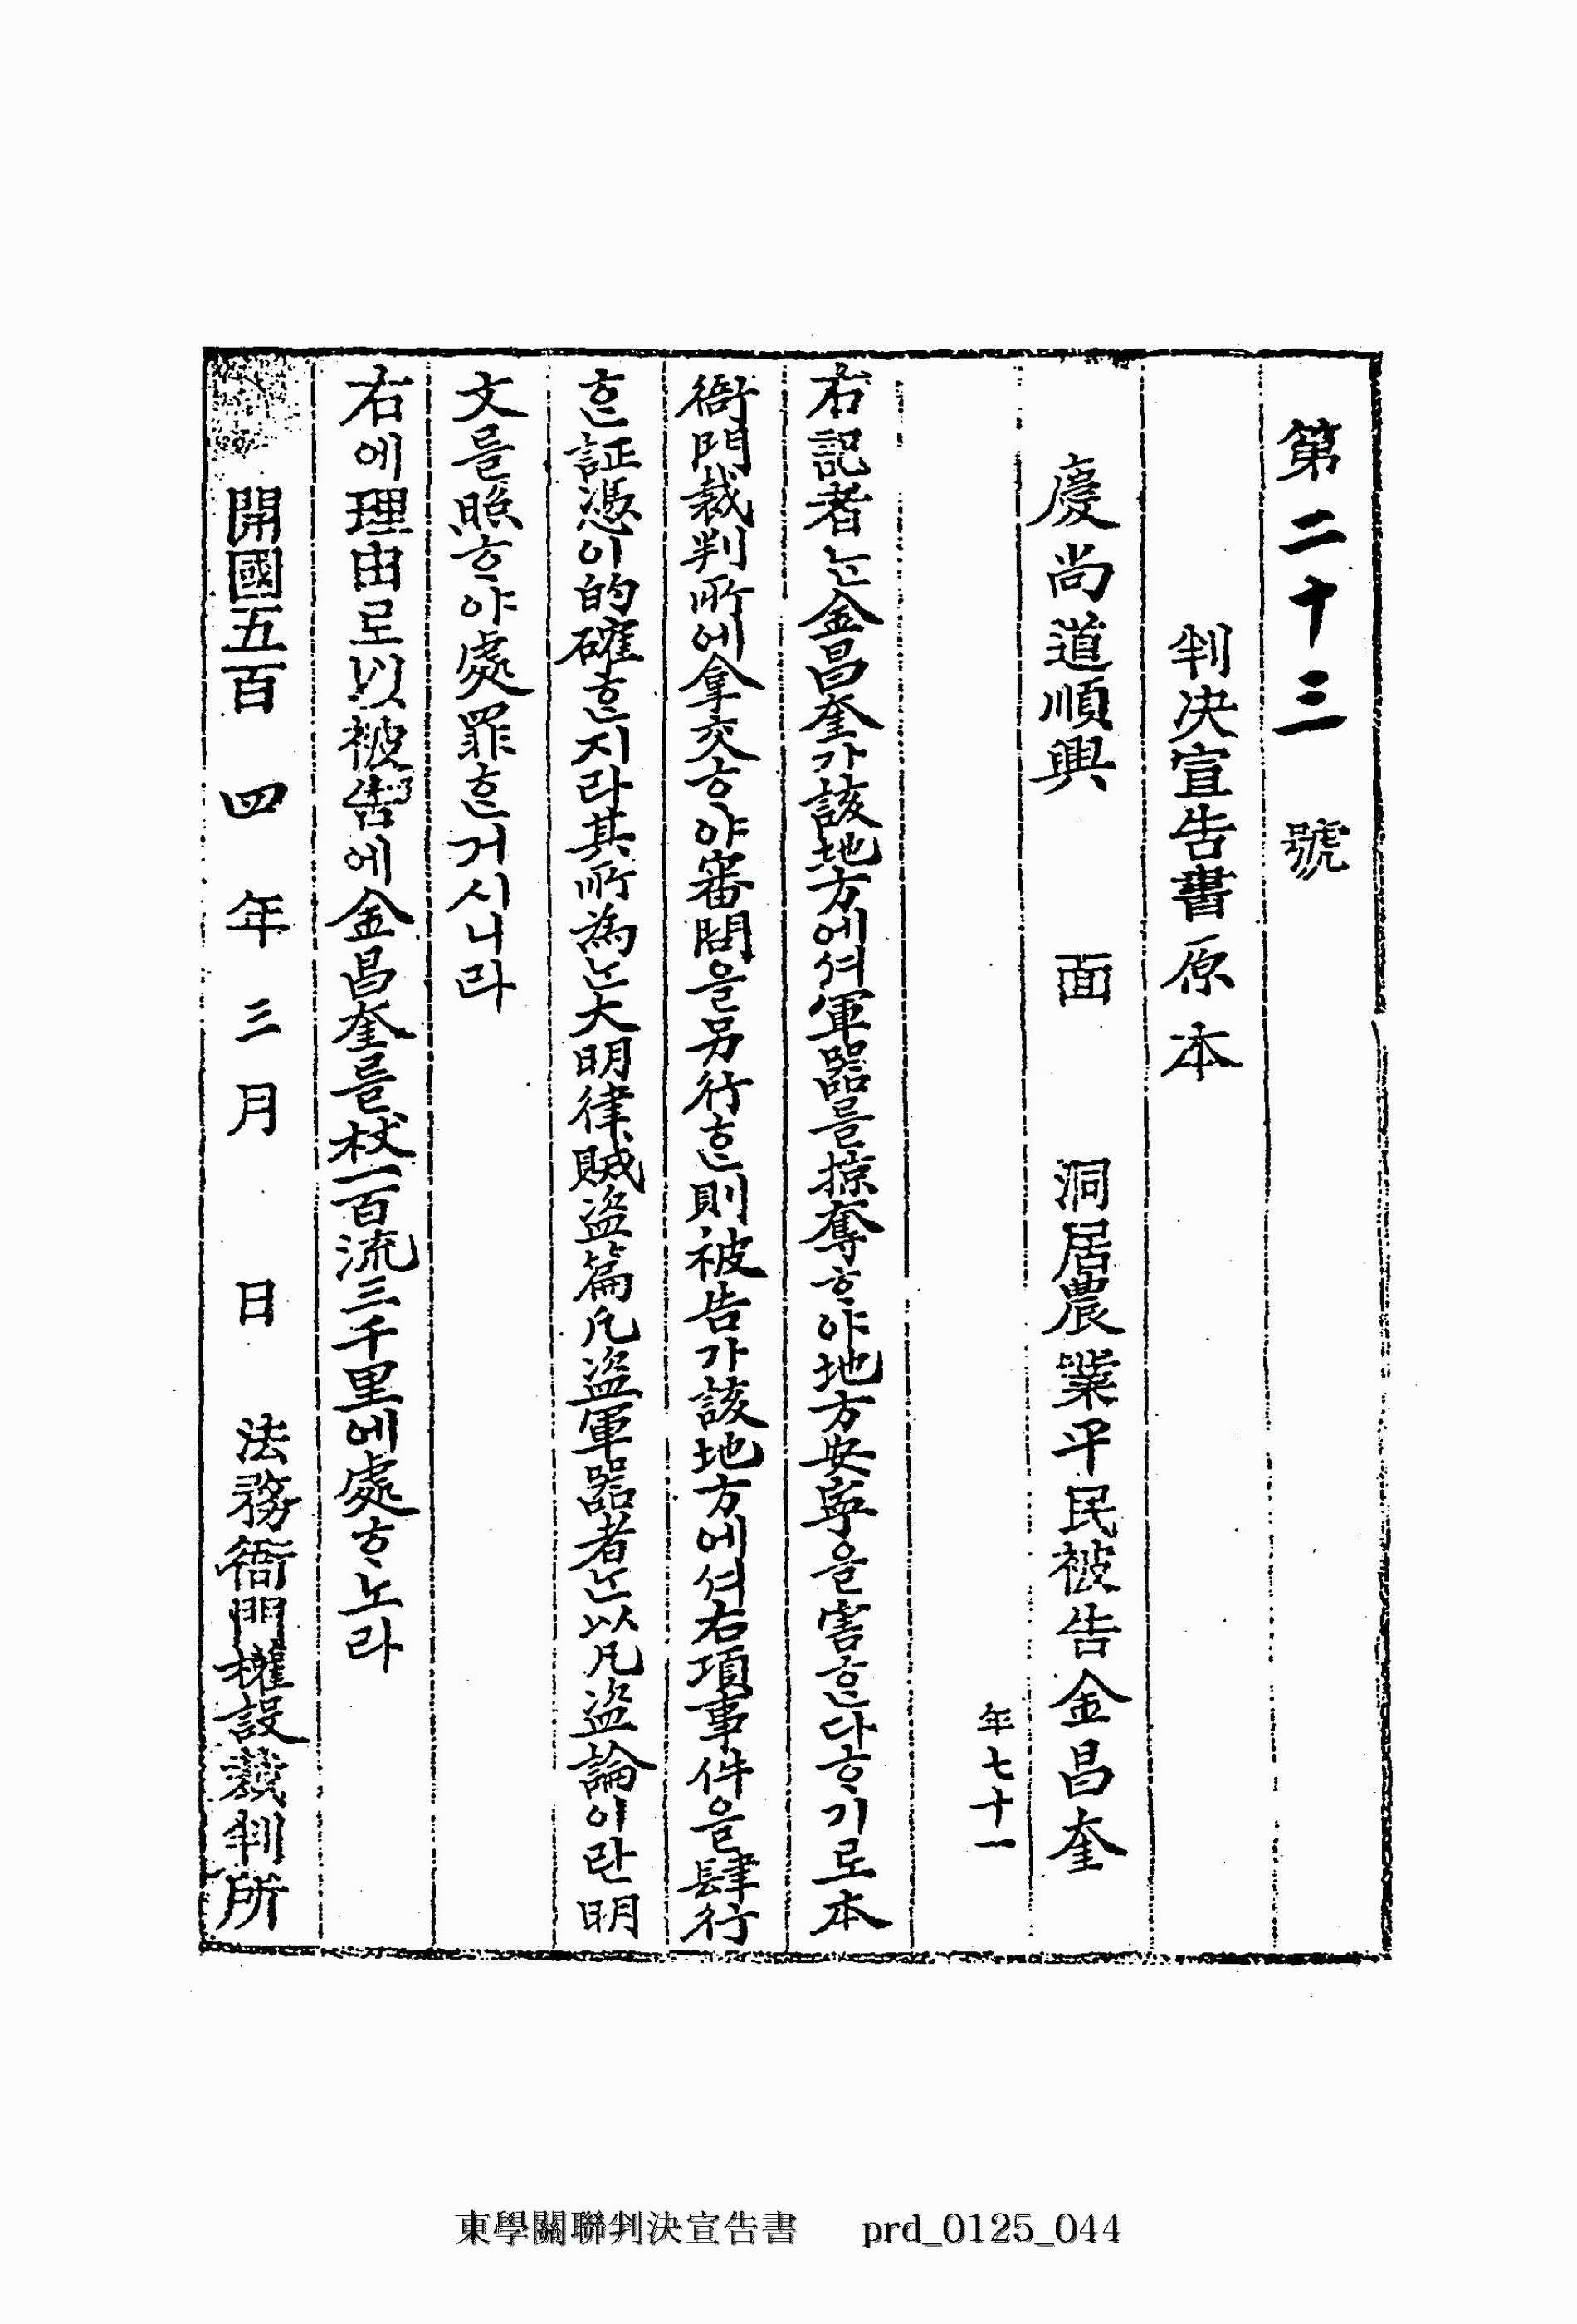 第二十三號
判决宣告書原本
慶尚道順興 面 洞居農業平民被告金昌奎
年七十一
右記者ᄂᆞᆫ金昌奎가該地方에셔軍器를掠奪ᄒᆞ야地方安寧을害ᄒᆞᆫ다ᄒᆞ기로本
衙門裁判所에拿交ᄒᆞ야審問을另行ᄒᆞᆫ則被告가該地方에셔右項事件을肆行
ᄒᆞᆫ証憑이的確ᄒᆞᆫ지라其所為ᄂᆞᆫ大明律賊盜篇凡盜軍器者ᄂᆞᆫ以凡盜論이란明
文를照ᄒᆞ야處罪ᄒᆞᆫ거시니라
右에理由로以被告에金昌奎를杖一百流三千里에處ᄒᆞ노라
開國五百四年三月 日 法務衙門權設裁判所
東學關聯判決宣告書 prd_0125_044